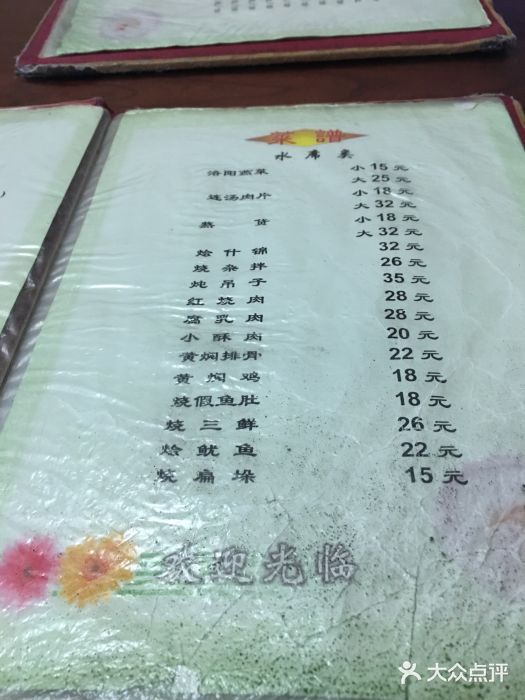 菜譜
水席类
洛阳燕菜 小 15 元
大 25 元
连汤肉片 小 18 元
大 32 元
蒸货 小 18 元
大 32 元
烩什锦 32 元
烧杂拌 26 元
炖吊子 35 元
红烧肉 28 元
腐乳肉 28 元
小酥肉 20 元
黄焖排骨 22 元
黄焖鸡 18 元
烧假鱼肚 18 元
烧三鲜 26 元
烩鱿鱼 22 元
烧扁垛 15 元
欢迎光临
大众点评